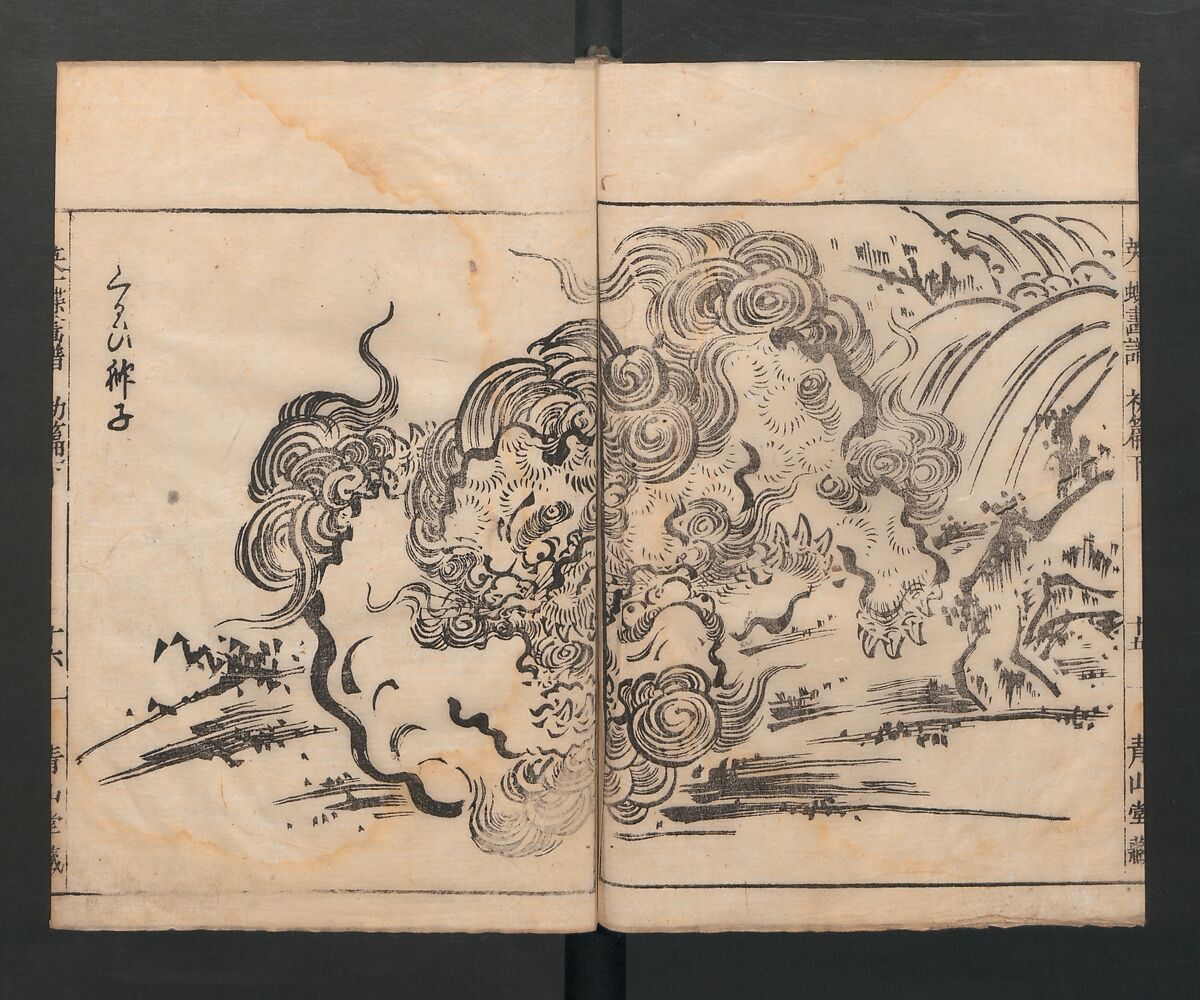 英一蝶畫譜 初篇下 十五 青山堂藏
くるひ獅子
英一蝶畫譜 初篇下 十六 青山堂藏